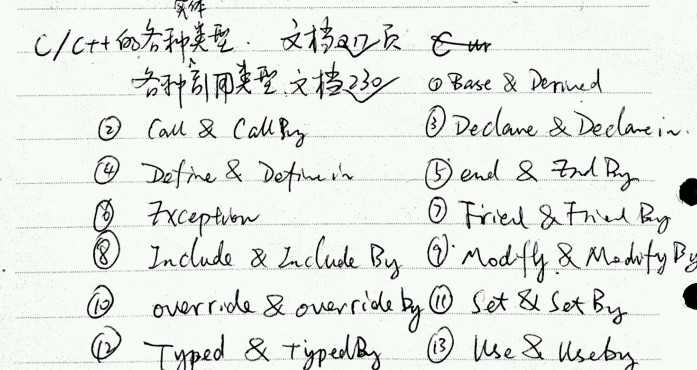 实体
C/C++的各种类型. 文档217页
各种引用类型.文档230 ①Base & Derived
② Call & CallBy ③ Declare & Declarein.
④ Define & Definein ⑤ end & End By
⑥ Exception ⑦ Fried & Fried By
⑧ Include & Include By ⑨ Modify & Modify By
⑩ override & override by ⑪ Set & Set By
⑫ Typed & TypedBy ⑬ Use & Useby